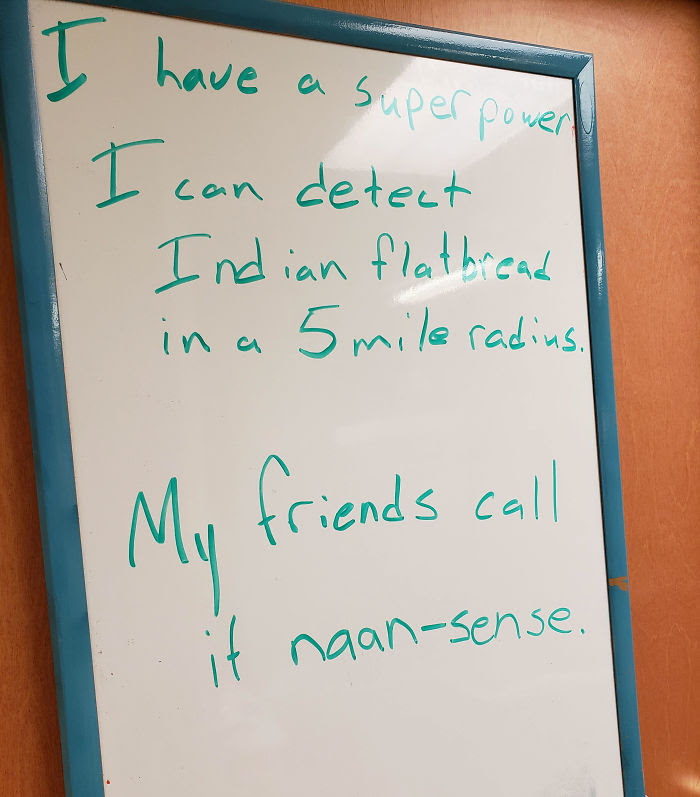 I have a super power
I can detect
Indian flatbread
in a 5 mile radius.
My friends call
it naan-sense.